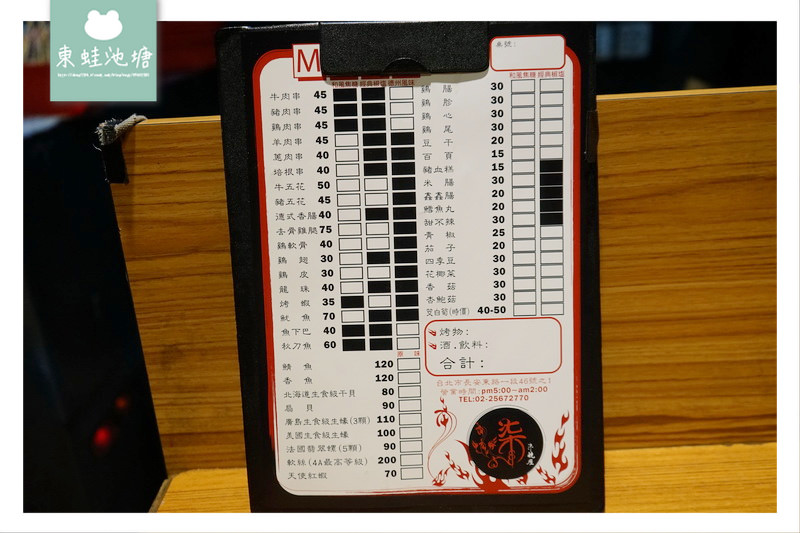 東蛙池塘
M
桌號:
和風焦糖 經典椒塩 德州風味
牛肉串 45
豬肉串 45
鷄肉串 45
羊肉串 45
蔥肉串 40
培根串 40
牛五花 50
豬五花 45
德式香腸 40
去骨雞腿 75
鷄軟骨 40
鷄翅 30
鷄皮 30
龍珠 40
烤蝦 35
魷魚 70
魚下巴 40
秋刀魚 60
原味
鯖魚 120
香魚 120
北海道生食級干貝 80
扇貝 90
廣島生食級生蠔(3顆) 110
美國生食級生蠔 100
法國翡翠螺(5顆) 90
軟絲(4A最高等級) 200
天使紅蝦 70
和風焦糖 經典椒塩
鷄腸 30
鷄胗 30
鷄心 30
鷄尾 30
豆干 20
百頁 15
豬血糕 15
米腸 30
鑫鑫腸 30
鱈魚丸 20
甜不辣 30
青椒 25
茄子 20
四季豆 30
花椰菜 30
香菇 30
杏鮑菇 30
茭白筍(時價) 40-50
烤物:
酒.飲料:
合計:
台北市長安東路一段46號之1
營業時間:pm5:00~am2:00
TEL:02-25672770
柒
串燒屋